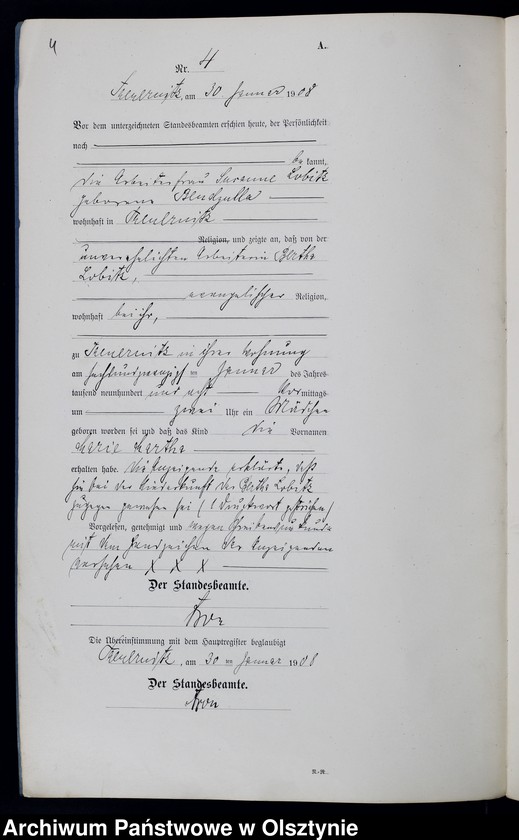 4
A.
Nr. 4
, am 30 Januar 1908
Vor dem unterzeichneten Standesbeamten erschien heute, der Persönlichkeit
nach
bekannt,
die Arbeiterfrau Susanne Lobitz
geborene Bendzulla
wohnhaft in
Religion, und zeigte an, daß von der
unverehelichten Arbeiterin Bertha
Lobitz,
evangelischer Religion,
wohnhaft bei ihr,
zu in ihrer Wohnung
am sechsundzwanzigsten Januar des Jahres
tausend neunhundert und acht Vormittags
um zwei Uhr ein Mädchen
geboren worden sei und daß das Kind die Vornamen
Marie Martha
erhalten habe. Die Anzeigende erklärte, daß
sie bei der Niederkunft der Bertha Lobitz
zugegen gewesen sei (1 Druckwort gestrichen)
Vorgelesen, genehmigt und wegen
mit dem Handzeichen der Anzeigenden
versehen X X X
Der Standesbeamte.
Die Übereinstimmung mit dem Hauptregister beglaubigt
, am 30 ten Januar 1908
Der Standesbeamte.
Archiwum Państwowe w Olsztynie